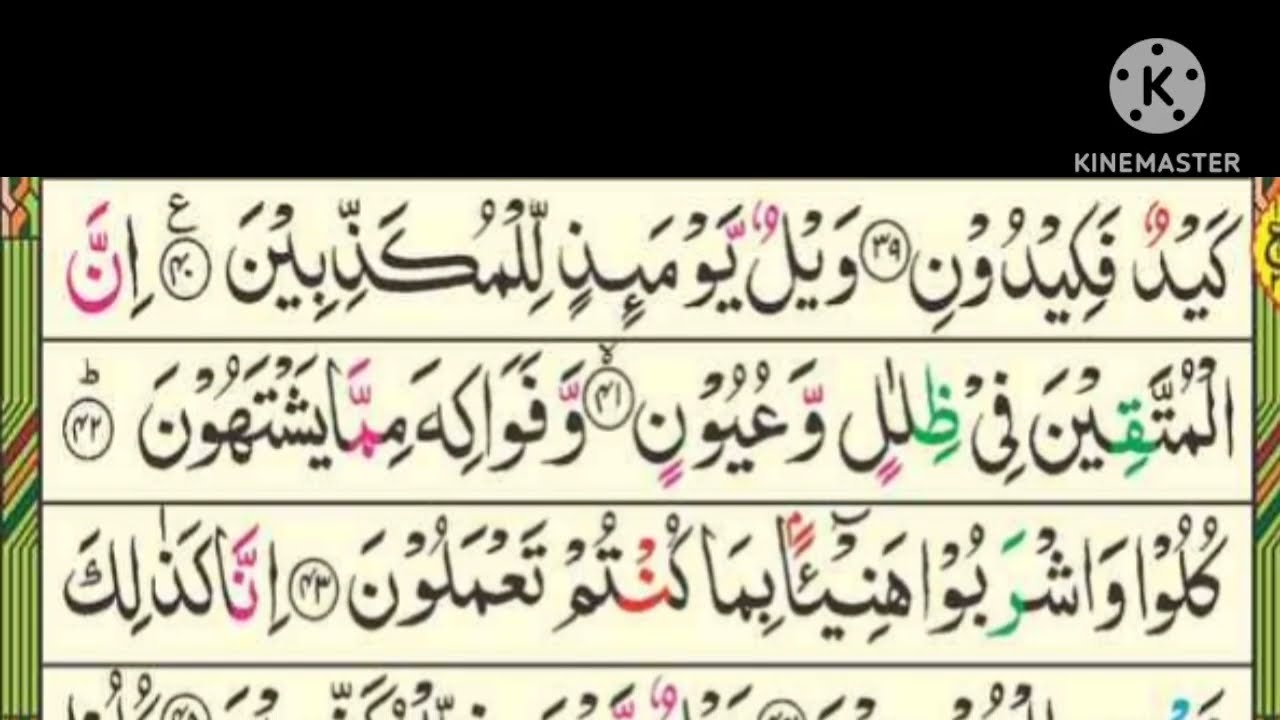 KINEMASTER
كَيْدٌ فَكِيْدُوْنِ ۳۹ وَيْلٌ يَّوْمَئِذٍ لِّلْمُكَذِّبِيْنَ ۴۰ ع اِنَّ
الْمُتَّقِيْنَ فِيْ ظِلٰلٍ وَّعُيُوْنٍ ۴۱ وَّفَوَاكِهَ مِمَّا يَشْتَهُوْنَ ۴۲ ط
كُلُوْا وَاشْرَبُوْا هَنِيْٓـًٔۢا بِمَا كُنْتُمْ تَعْمَلُوْنَ ۴۳ اِنَّا كَذٰلِكَ